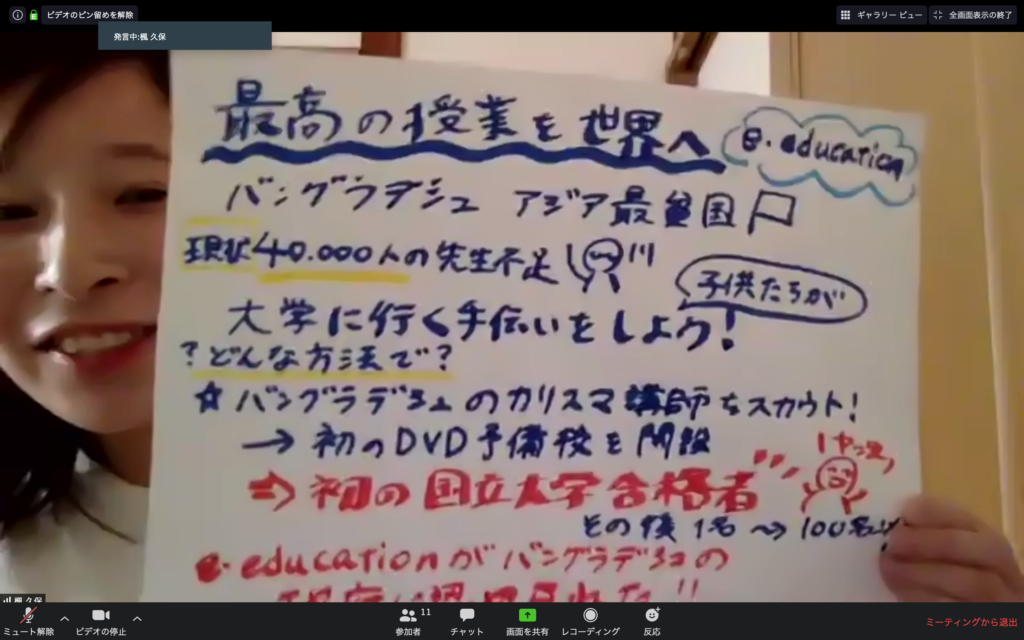 ビデオのピン留めを解除
ギャラリー ビュー
全画面表示の終了
発言中:楓 久保
最高の授業を世界へ
e-education
バングラデシュ アジア最貧国
現状40.000人の先生不足
子供たちが
大学に行く手伝いをしよう!
?どんな方法で?
☆バングラデシュのカリスマ講師をスカウト!
→初のDVD予備校を開設
⇒初の国立大学合格者
その後1名〜→100名
e-educationがバングラデシュの
楓 久保
ミュート解除
ビデオの停止
参加者
11
チャット
画面を共有
レコーディング
反応
ミーティングから退出